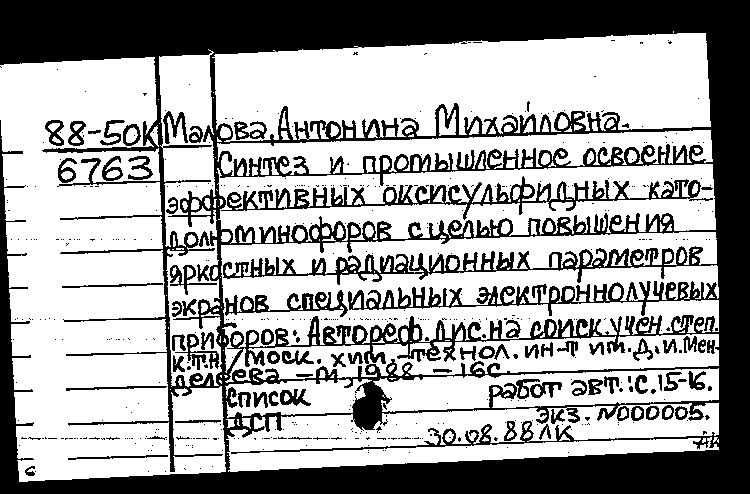 88-50К Малова, Антонина Михайловна.
6763 Синтез и промышленное освоение
эффективных оксисульфидных като-
долюминофоров с целью повышения
яркостных и радиационных параметров
экранов специальных электроннолучевых
приборов: Автореф. дис. на соиск. учен. степ.
к.т.н. / Моск. хим.-технол. ин-т им. Д. И. Мен-
делеева. - М., 1988. - 16с.
Список работ авт.: с. 15-16.
ДСП экз. N000005.
30.08.88 ЛК
АК